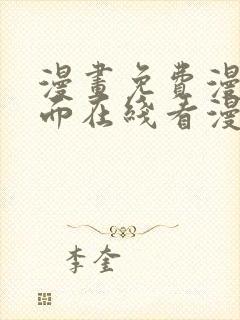 漫畫免費漫
而在綫看漫
李奎